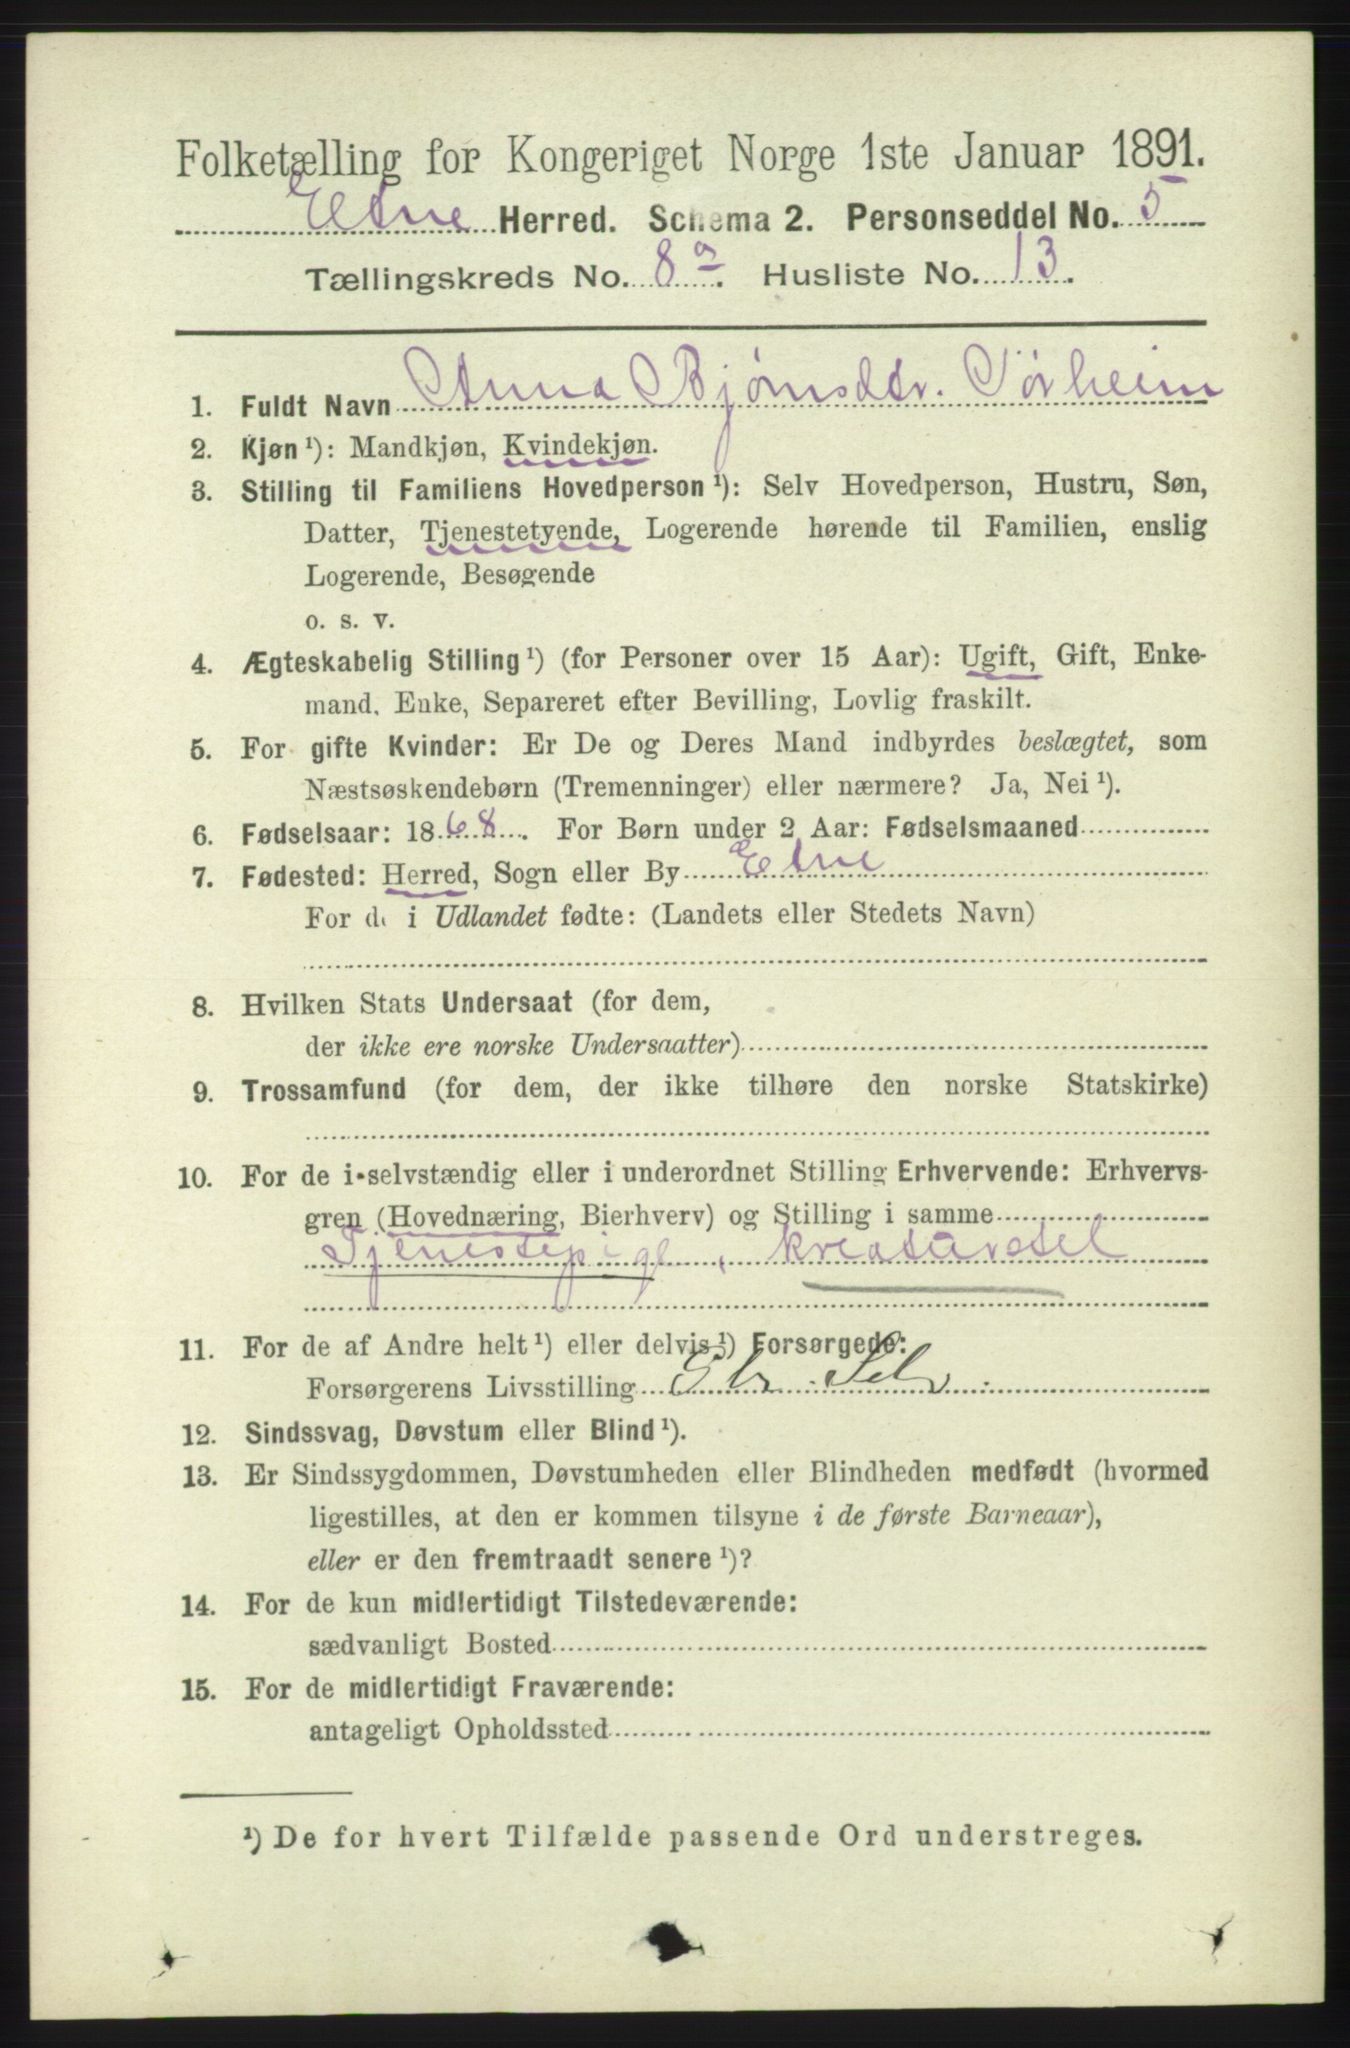 Folketælling for Kongeriget Norge 1ste Januar 1891.
Etne Herred. Schema 2. Personseddel No. 5
Tællingskreds No. 8a. Husliste No. 13.
1. Fuldt Navn Anna Bjørnsdtr. Sørheim
2. Kjøn ¹): Mandkjøn, Kvindekjøn.
3. Stilling til Familiens Hovedperson ¹): Selv Hovedperson, Hustru, Søn,
Datter, Tjenestetyende, Logerende hørende til Familien, enslig
Logerende, Besøgende
o. s. v.
4. Ægteskabelig Stilling ¹) (for Personer over 15 Aar): Ugift, Gift, Enke-
mand, Enke, Separeret efter Bevilling, Lovlig fraskilt.
5. For gifte Kvinder: Er De og Deres Mand indbyrdes beslægtet, som
Næstsøskendebørn (Tremenninger) eller nærmere? Ja, Nei ¹).
6. Fødselsaar: 1868. For Børn under 2 Aar: Fødselsmaaned
7. Fødested: Herred, Sogn eller By Etne
For de i Udlandet fødte: (Landets eller Stedets Navn)
8. Hvilken Stats Undersaat (for dem,
der ikke ere norske Undersaatter)
9. Trossamfund (for dem, der ikke tilhøre den norske Statskirke)
10. For de i selvstændig eller i underordnet Stilling Erhvervende: Erhvervs-
gren (Hovednæring, Bierhverv) og Stilling i samme
Tjenestepige, kreaturstel
11. For de af Andre helt ¹) eller delvis ¹) Forsørgede:
Forsørgerens Livsstilling
12. Sindssvag, Døvstum eller Blind ¹).
13. Er Sindssygdommen, Døvstumheden eller Blindheden medfødt (hvormed
ligestilles, at den er kommen tilsyne i de første Barneaar),
eller er den fremtraadt senere ¹)?
14. For de kun midlertidigt Tilstedeværende:
sædvanligt Bosted
15. For de midlertidigt Fraværende:
antageligt Opholdssted
¹) De for hvert Tilfælde passende Ord understreges.